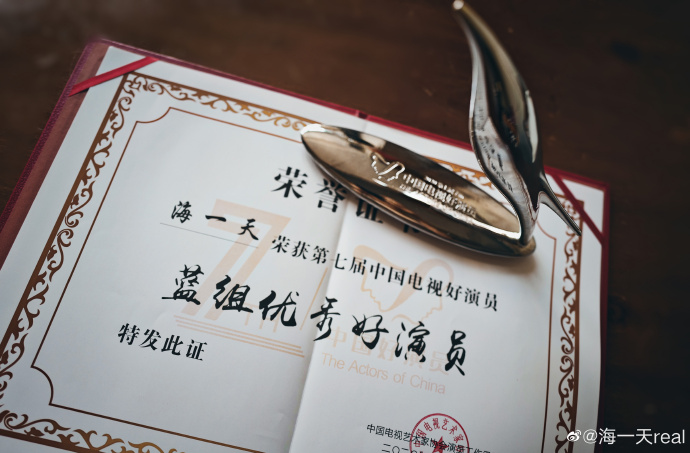 中国电视好演员
荣誉证
海一天 荣获第七届中国电视好演员
蓝组优秀好演员
中国好演员
The Actors of China
特发此证
中国电视艺术家协会演员工作
二〇二
@海一天real